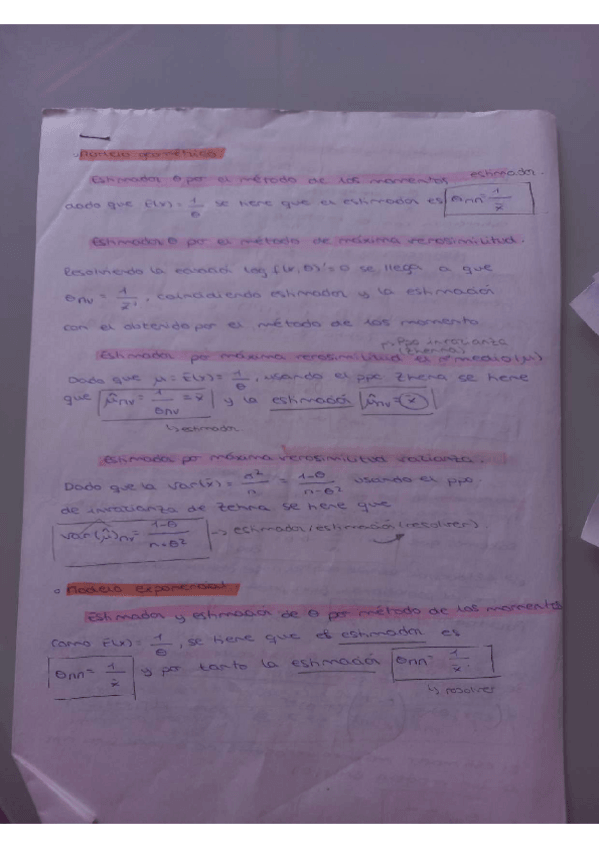 Modelo geométrico
Estimador θ por el método de los momentos estimador.
dado que E(x) = 1/θ se tiene que el estimador es θMM = 1/x̄
Estimador θ por el método de máxima verosimilitud.
Resolviendo la ecuación log f(x,θ)' = 0 se llega a que
θMV = 1/x̄, coincidiendo estimador y la estimación
con el obtenido por el método de los momento
Ppo invarianza
(Zhenna)
Estimador por máxima verosimilitud el medio (μ)
Dado que μ = E(x) = 1/θ, usando el ppo Zhena se tiene
que μ̂MV = 1/θMV = x̄ y la estimación μ̂MV = x̄
↳ estimador
Estimador por máxima verosimilitud varianza.
Dado que la var(x̄) = σ²/n = 1-θ/n·θ² usando el ppo
de invarianza de Zehna se tiene que
var(μ̂)MV = 1-θ/n·θ² → estimador/estimación (resolver).
Modelo exponencial
Estimador y estimación de θ por método de los momentos
Como E(x) = 1/θ, se tiene que el estimador es
θMM = 1/x̄ y por tanto la estimación θMM = 1/x̄
↳ resolver